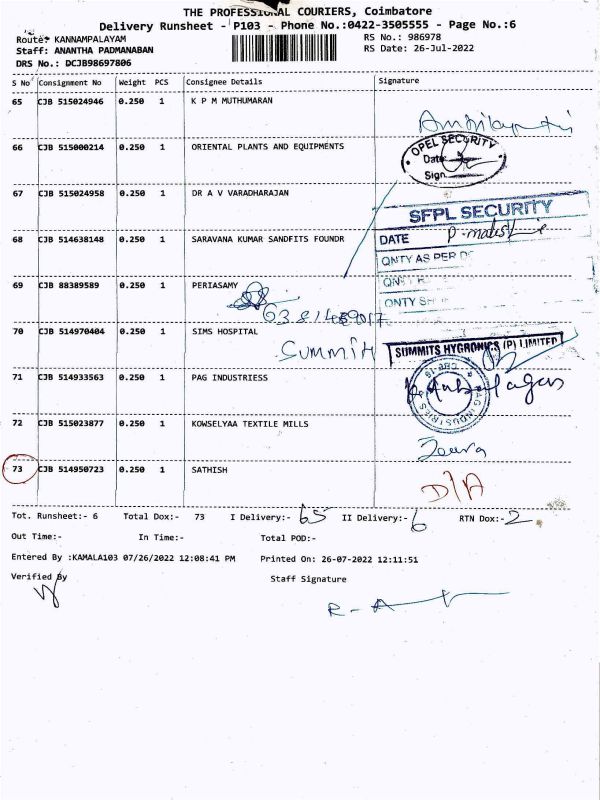 THE PROFESSIONAL COURIERS, Coimbatore
Delivery Runsheet - P103 - Phone No.:0422-3505555 - Page No.:6
Route: KANNAMPALAYAM RS No.: 986978
Staff: ANANTHA PADMANABAN RS Date: 26-Jul-2022
DRS No.: DCJB98697806
S No Consignment No Weight PCS Consignee Details Signature
65 CJB 515024946 0.250 1 K P M MUTHUMARAN
66 CJB 515000214 0.250 1 ORIENTAL PLANTS AND EQUIPMENTS
OPEL SECURITY
Date
Sign
67 CJB 515024958 0.250 1 DR A V VARADHARAJAN
SFPL SECURITY
68 CJB 514638148 0.250 1 SARAVANA KUMAR SANDFITS FOUNDR
DATE
QNTY AS PER
69 CJB 88389589 0.250 1 PERIASAMY
QNTY
70 CJB 514970404 0.250 1 SIMS HOSPITAL
Summit SUMMITS HYGRONICS (P) LIMITED
71 CJB 514933563 0.250 1 PAG INDUSTRIESS
PAG INDUSTRIES
72 CJB 515023877 0.250 1 KOWSELYAA TEXTILE MILLS
73 CJB 514950723 0.250 1 SATHISH
D/A
Tot. Runsheet:- 6 Total Dox:- 73 I Delivery:- 65 II Delivery:- 6 RTN Dox:- 2
Out Time:- In Time:- Total POD:-
Entered By :KAMALA103 07/26/2022 12:08:41 PM Printed On: 26-07-2022 12:11:51
Verified By Staff Signature